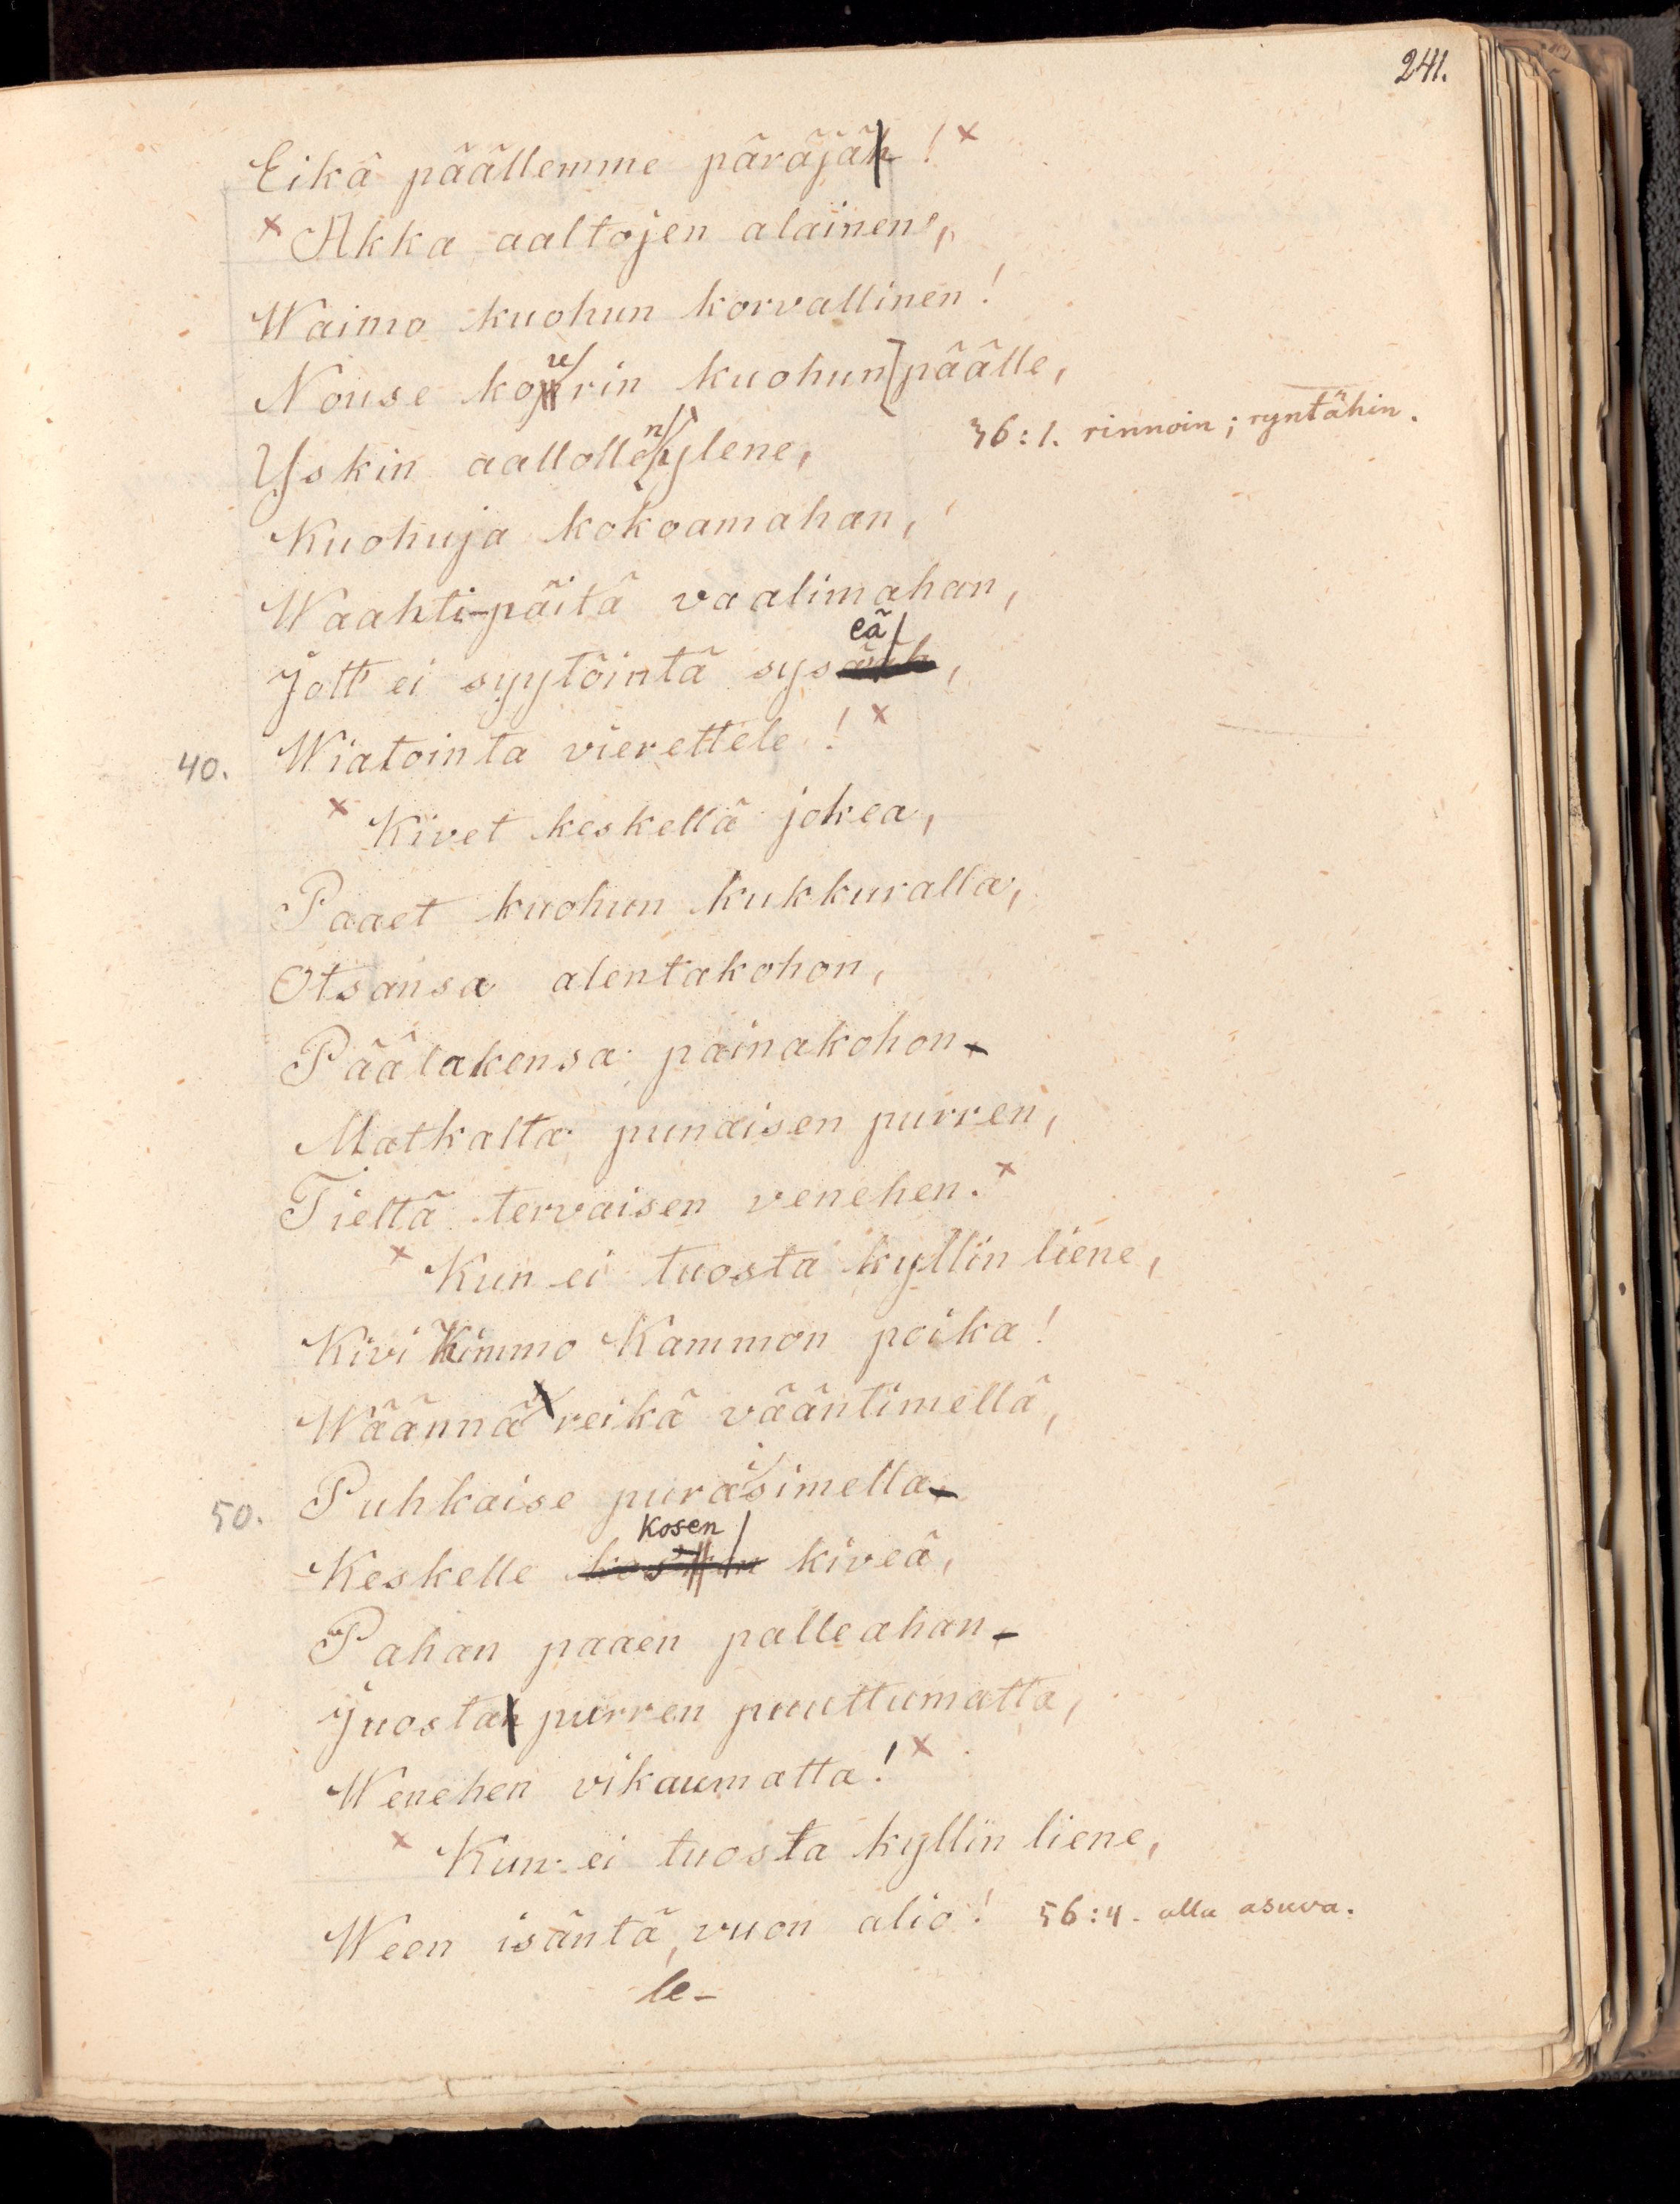 241.
Eikä päällemme päräjäh !×
× Akka aaltojen alainen',
Waimo kuohun korvallinen!
u
Nouse koprin kuohun[päälle,
36:1. rinnoin; ryntähin.
n
Yskin aallolle[hylene,
Kuohuja kokoamahan,
Waahti-päitä vaalimahan,
eä
Jott' ei syytöintä sys
40. Wiatointa vierettele !×
× Kivet keskellä jokea,
Paaet kuohun kukkuralla,
Otsansa alentakohon,
Päälakensa painakohon-
Matkalta punaisen purren,
Tieltä tervaisen venehen.×
× Kun ei tuosta kyllin liene,
Kivi Kimmo Kammon poika!
Wäännä reikä vääntimellä,
50. Puhkaise puraisimella-
Kosen
Keskelle kiveä,
Pahan paaen palleahan-
Juostan purren puuttumatta,
Wenehen vikaumatta!×
× Kun ei tuosta kyllin liene,
Ween isäntä, vuon alio! 56:4. alla asuva.
le-